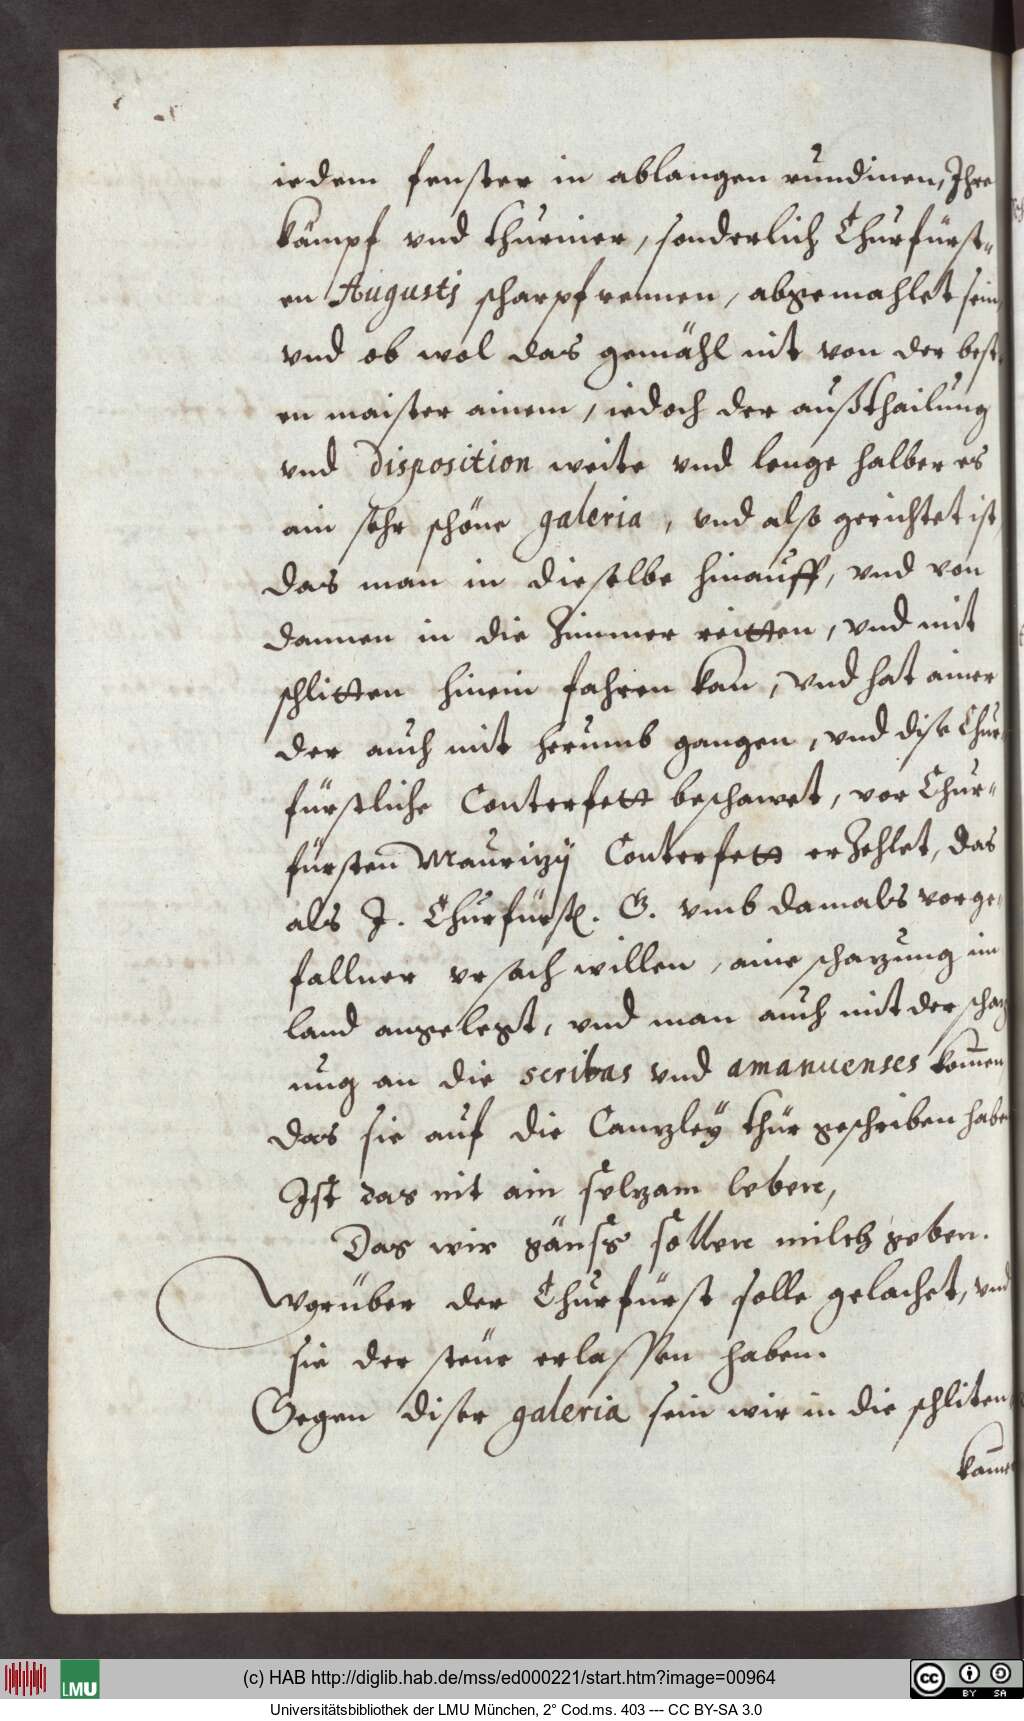 iedem fenster in ablangen rundinen, Ihre
kämpf vnd thurnier, sonderlich Churfürst-
en Augusti scharpfrennen, abgemahlet sein,
vnd ob wol das gemähl nit von der best-
en maister ainem, iedoch der außthailung
vnd disposition weite vnd lenge halber es
ain sehr schöne galeria, vnd also gerichtet ist,
das man in dieselbe hinauff, vnd von
dannen in die Zimmer reitten, vnd mit
schlitten hinein fahren kan, vnd hat ainer
der auch mit herumb gangen, vnd dise Chur
fürstliche Conterfett beschawet, vor Chur-
fürsten Mauritzÿ Conterfett erZehlet, das
als J. Churfürstl. G. vmb damals vorge-
fallner vrsach willen, aine schazung im
land angelegt, vnd man auch mit der schaz
ung an die scribas vnd amanuenses kom̄en,
das sie auf die Canzleÿ thür geschriben haben
Ist das nit ain selzam leben,
Das wir gänss sollen milch geben.
Worüber der Churfürst solle gelachet, vnd
sie der steür erlassen haben.
Gegen diser galeria sein wir in die schliten
kam̄er
(c) HAB http://diglib.hab.de/mss/ed000221/start.htm?image=00964
Universitätsbibliothek der LMU München, 2° Cod.ms. 403 --- CC BY-SA 3.0
LMU
cc BY SA